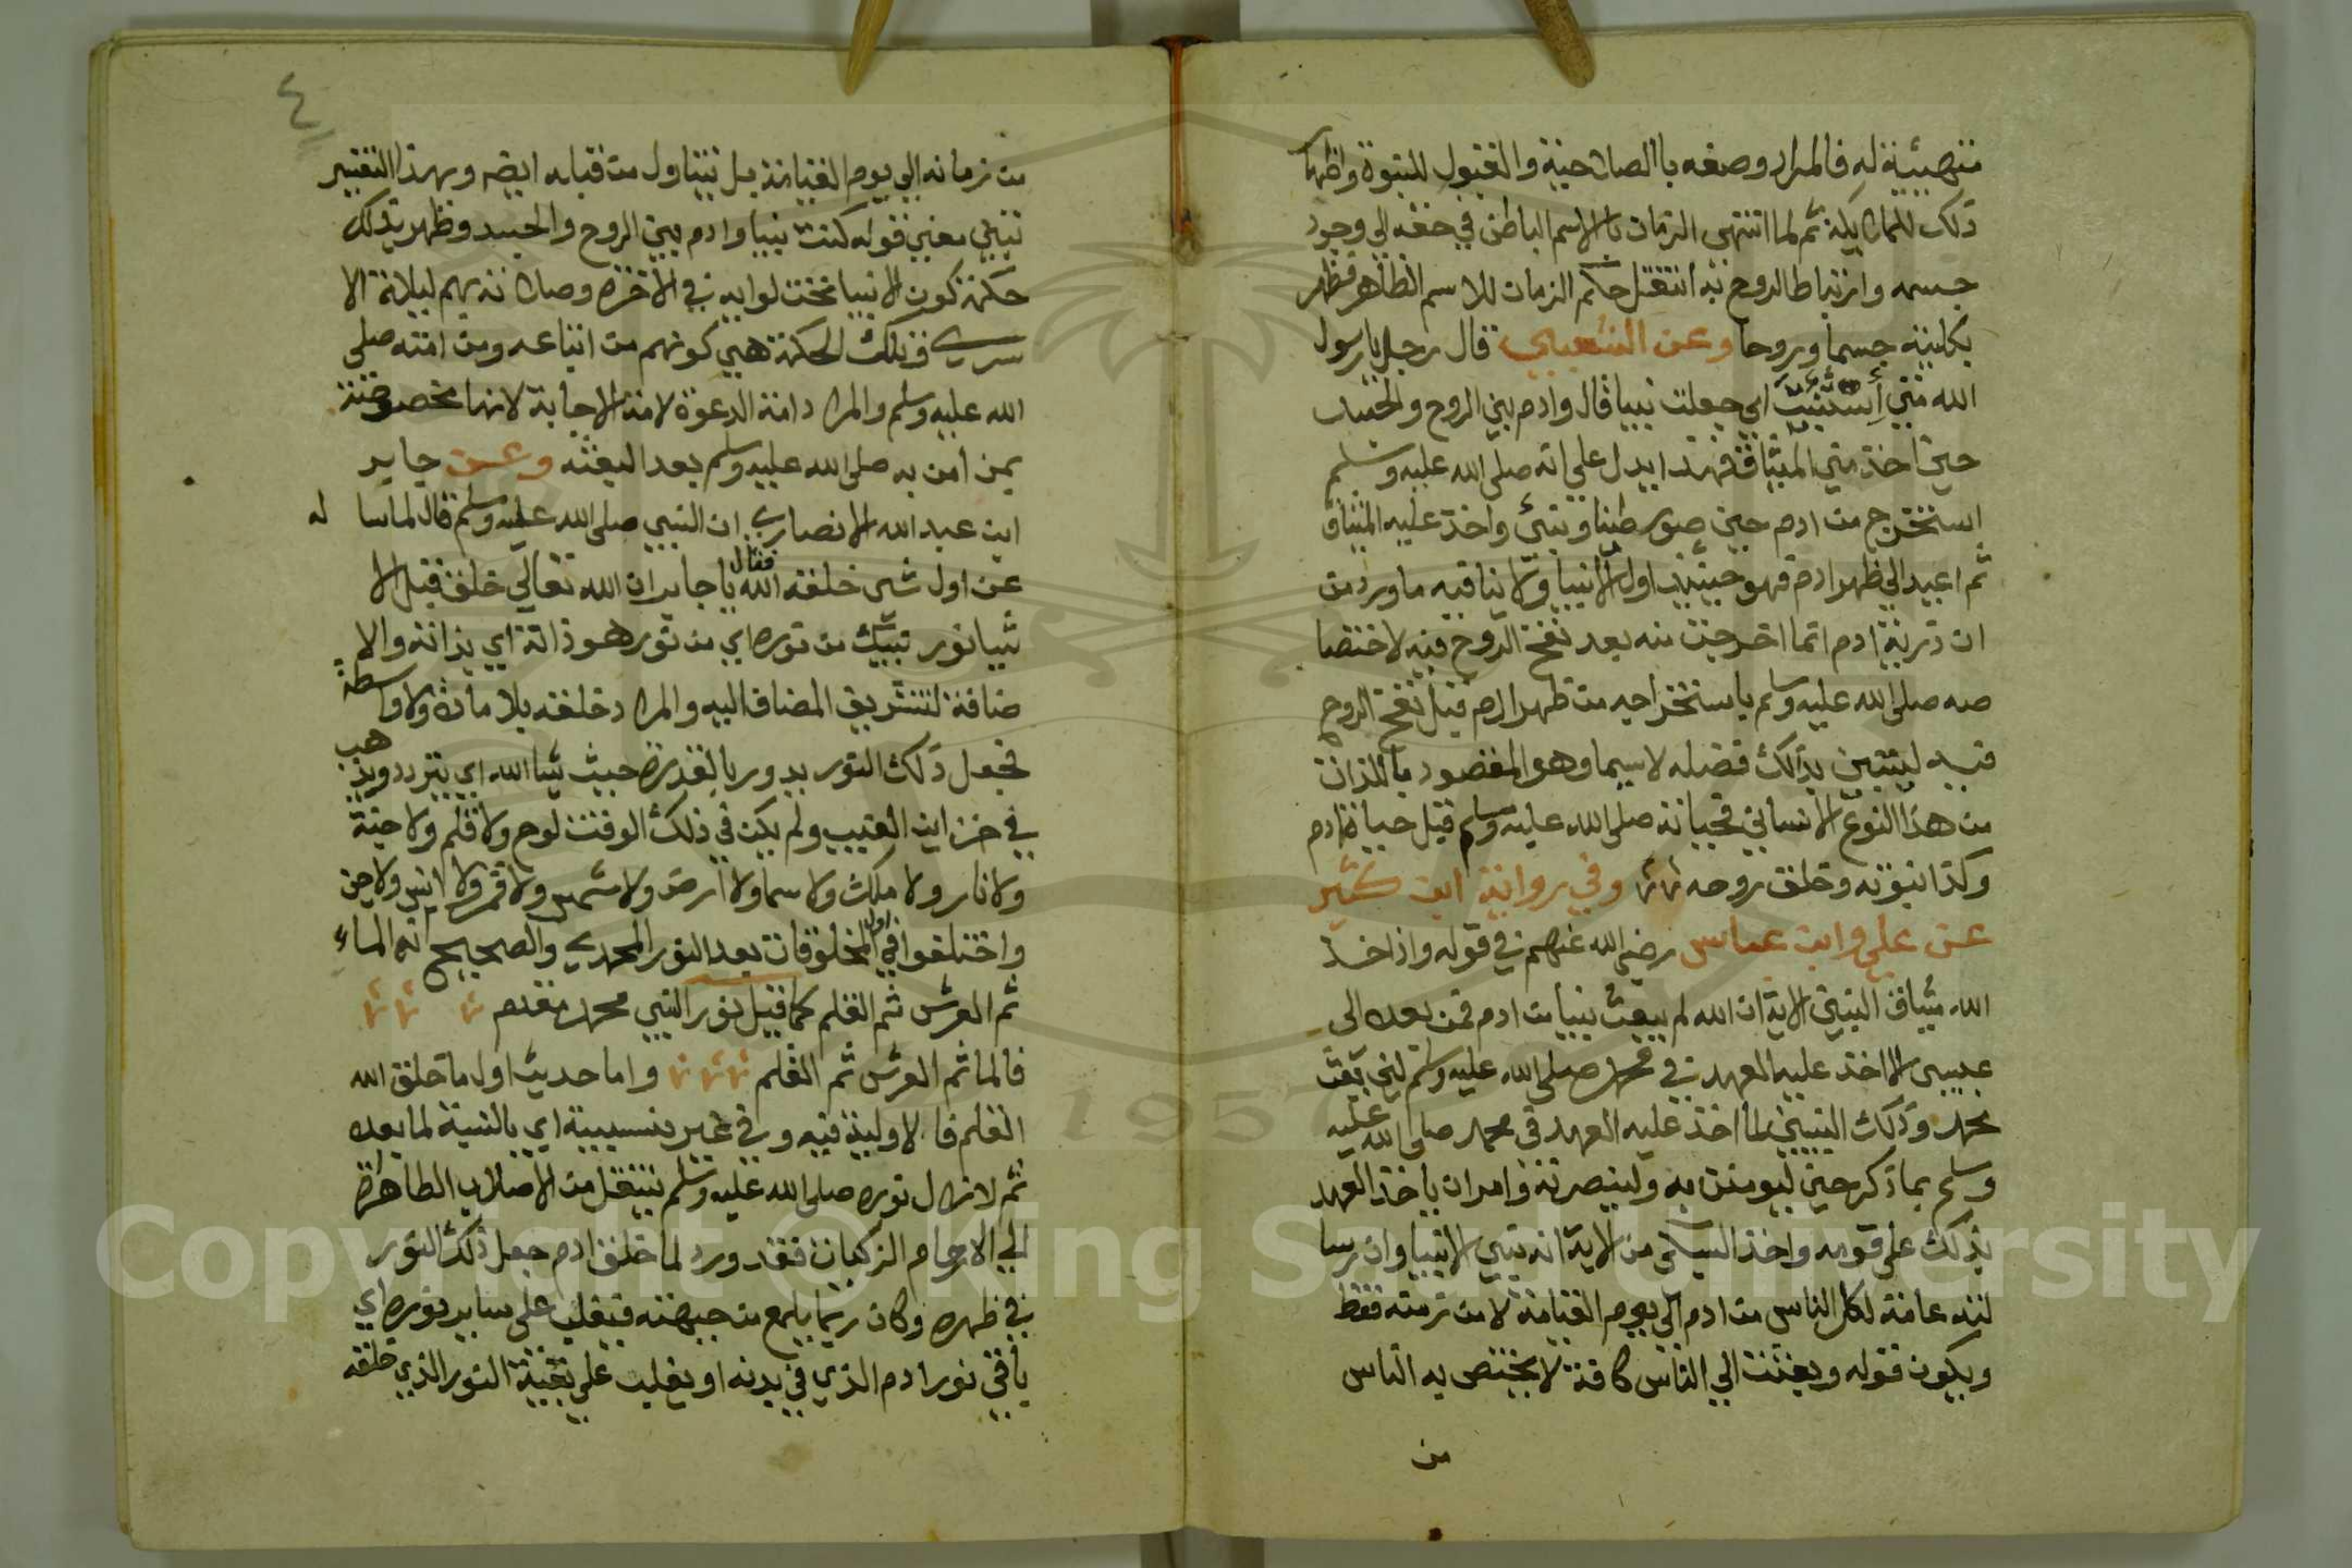 متهيئة له فالمراد وصفه باالصلاحية والقبول للنبوة واظهار
ذلك للملايكة ثم لما انتهى الزمان بالاسم الباطن في حقه الي وجود
جسمه وارتباط الروح به انتقل حكم الزمان للاسم الظاهر فظهر
بكليته جسما وروحا وعن الشعبي قال رجل يارسول
الله متي استنبئت اي جعلت نبيا قال وادم بين الروح والجسد
حين اخذ مني الميثاق فهذا يدل علي انه صلى الله عليه وسلم
استخرج من ادم حين صور طينا ونبئ واخذ عليه الميثاق
ثم اعيد الي ظهر ادم فهو حينئذ اول الانبيا ولا ينافيه ما ورد من
ان ذرية ادم انما اخرجت منه بعد نفخ الروح فيه لاختصا
صه صلى الله عليه وسلم باستخراجه من ظهر ادم قبل نفخ الروح
فيه ليتبين بذلك فضله لاسيما وهو المقصود بالذات
من هذا النوع الانساني فحياته صلى الله عليه وسلم قبل حياة ادم
وكذا نبوته وخلق روحه وفي رواية ابن كثير
عن علي وابن عباس رضي الله عنهم في قوله واذ اخذ
الله ميثاق النبيين الاية ان الله لم يبعث نبيا من ادم فمن بعده الى
عيسى الا اخذ عليه العهد في محمد صلى الله عليه وسلم لئن بعث
محمد وذلك النبي لما اخذ عليه العهد في محمد صلى الله عليه
وسلم بما ذكر حين ليومنن به ولينصرنه وامر ان ياخذ العهد
بذلك على قومه واخذ السبكي من الاية انه نبي الانبيا وان رسا
لته عامة لكل الناس من ادم الى يوم القيامة لا من زمنه فقط
ويكون قوله وبعثت الي الناس كافة لا يختص به الناس
من
٤
من زمانه الي يوم القيامة بل تتناول من قبله ايضه وبهذا التقرير
تبين معني قوله كنت نبيا وادم بين الروح والجسد وظهر بذلك
حكمة كون الانبيا تحت لوايه في الاخرة وصلاته بهم ليلة الا
سري فتلك الحكمة هي كونهم من اتباعه ومن امته صلى
الله عليه وسلم والمراد امة الدعوة لا امة الاجابة لانها مخصوصة
بمن امن به صلى الله عليه وسلم بعد البعثه وعن جابر
ابن عبد الله الانصاري ان النبي صلى الله عليه وسلم قال لما سا له
عن اول شى خلقه الله فقال يا جابر ان الله تعالي خلق قبل الا
شيا نور نبيك من نوره اي من نور هو ذاته اي بذاته والا
ضافة لتشريف المضاف اليه والمراد خلقه بلا مادة ولا واسطة
فجعل ذلك النور يدور بالقدرة حيث شا الله اي يتردد ويذهب
في خزاين الغيب ولم يكن في ذلك الوقت لوح ولا قلم ولا جنة
ولا نار ولا ملك ولا سما ولا ارض ولا شمس ولا قمر ولا انس ولا جن
واختلفوا في اول المخلوقات بعد النور المحمدي والصحيح انه الماء
ثم العرش ثم القلم كما قيل نور النبي محمد مقدم
فالما ثم العرش ثم القلم واما حديث اول ما خلق الله
القلم فالاولية فيه وفي غيره نسبية اي بالنسبة لما بعده
ثم لا زال نوره صلى الله عليه وسلم ينتقل من الاصلاب الطاهرة
الي الارحام الزكيات فقد ورد لما خلق ادم جعل ذلك النور
في ظهره وكان ربما يلمع من جبهته فيغلب على ساير نوره اي
باقي نور ادم الذي في بدنه او يغلب علي بقية النور الذي خلقه